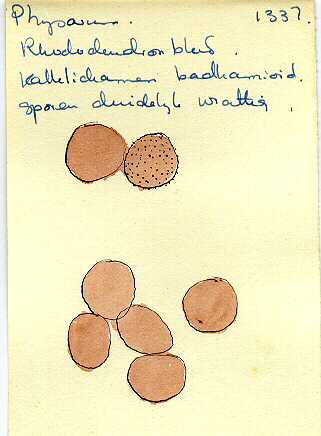 Physarum. 1337.
Rhododendron blad.
kalklichamen badhamioid.
sporen duidelijk wrattig.